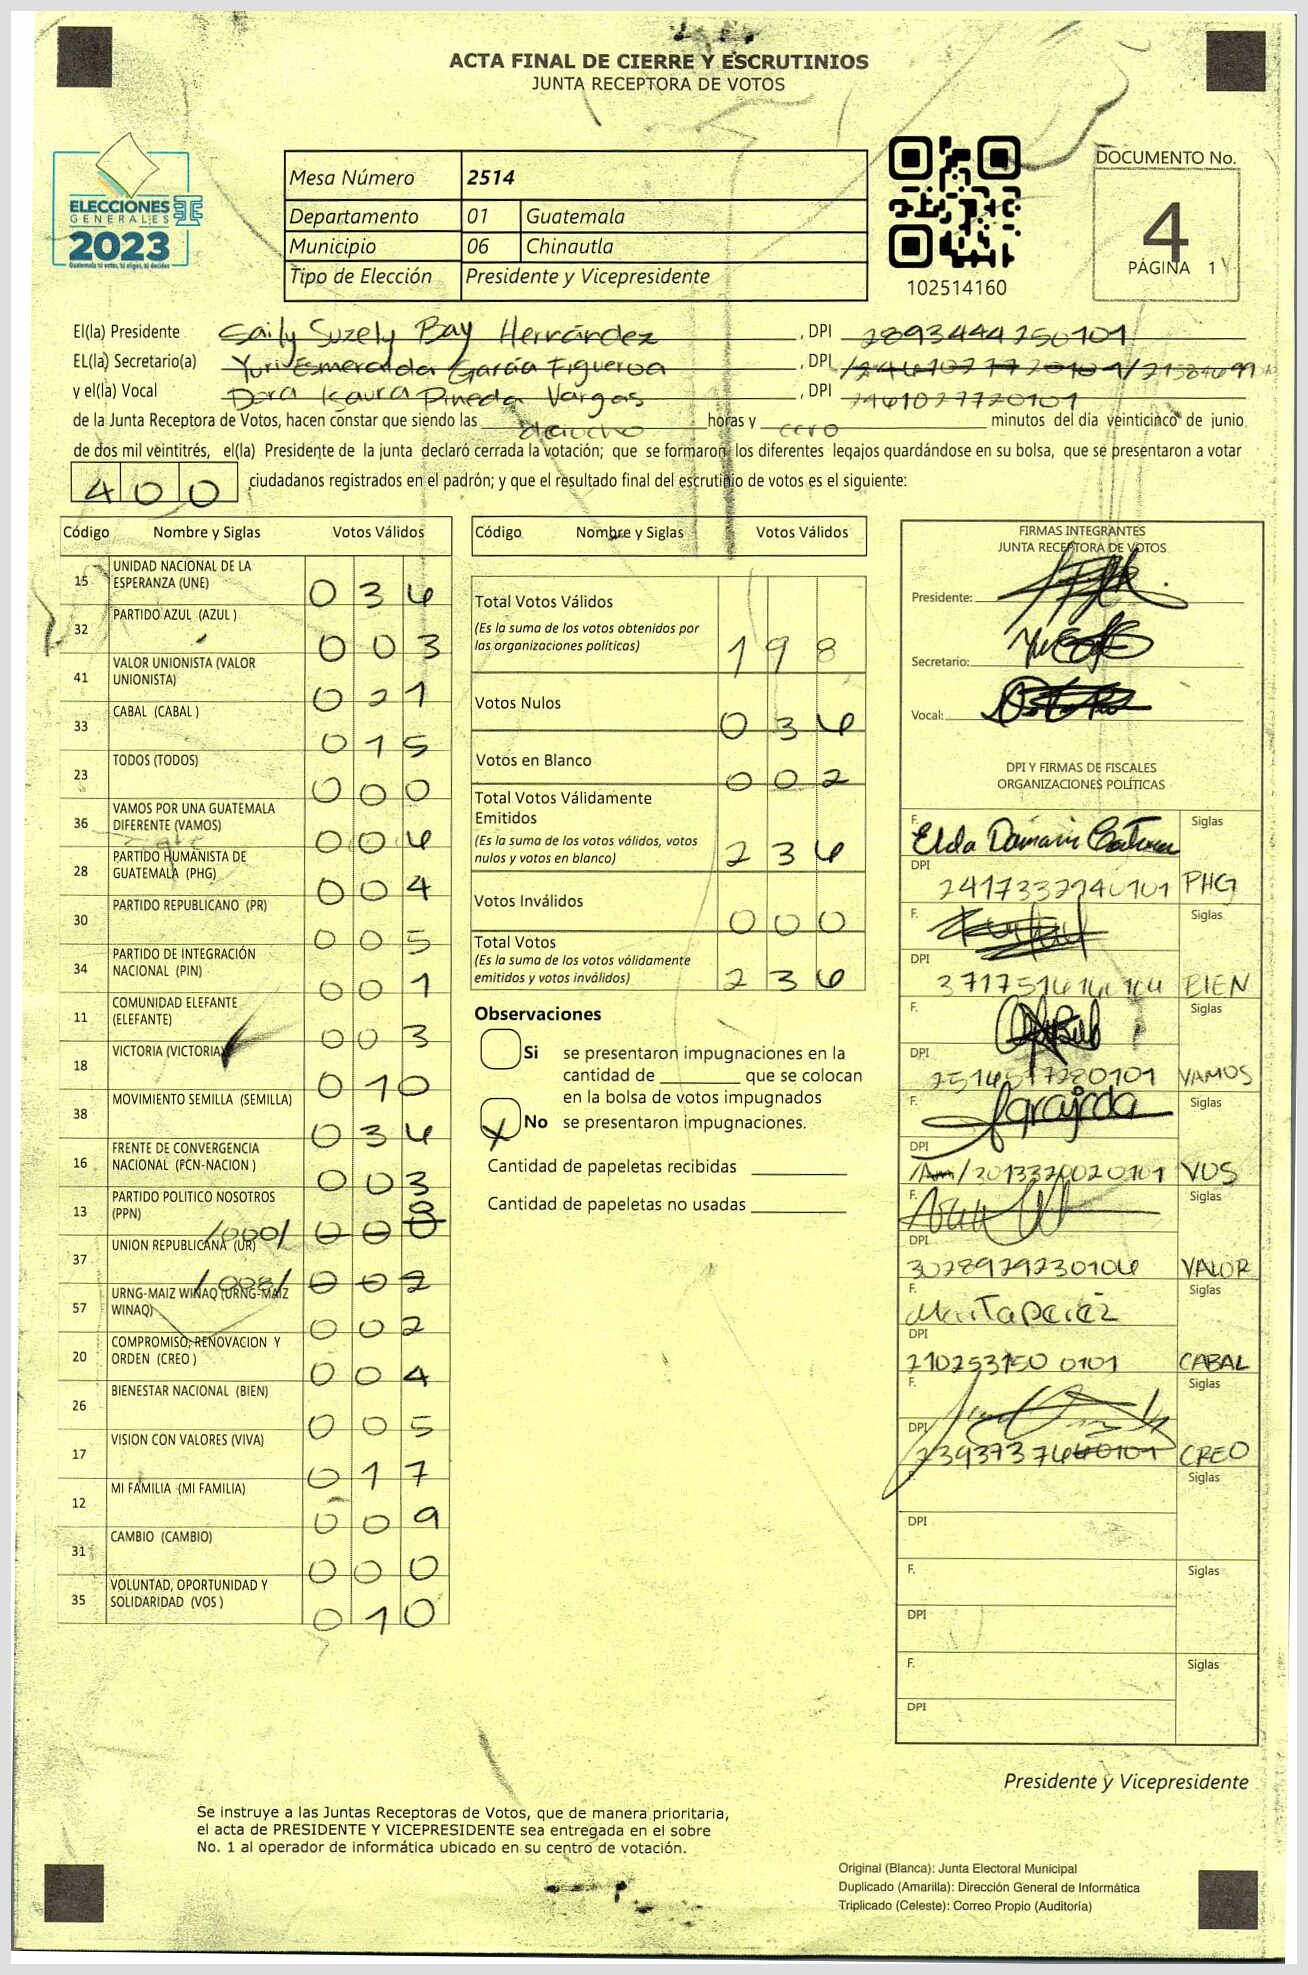 ACTA FINAL DE CIERRE Y ESCRUTINIOS
JUNTA RECEPTORA DE VOTOS
ELECCIONES
GENERALES
2023
Guatemala tú votas, tú eliges, tú decides
Mesa Número 2514
Departamento 01 Guatemala
Municipio 06 Chinautla
Tipo de Elección Presidente y Vicepresidente
102514160
DOCUMENTO No.
4
PÁGINA 1
El(la) Presidente Saily Suzely Bay Hernández, DPI 2893444250101
EL(la) Secretario(a) Yuri Esmeralda García Figueroa, DPI
y el(la) Vocal Dora Laura Pineda Vargas, DPI 2461027720101
de la Junta Receptora de Votos, hacen constar que siendo las horas y cero minutos del día veinticinco de junio
de dos mil veintitrés, el(la) Presidente de la junta declaró cerrada la votación; que se formaron los diferentes legajos guardándose en su bolsa, que se presentaron a votar
400 ciudadanos registrados en el padrón; y que el resultado final del escrutinio de votos es el siguiente:
Código Nombre y Siglas Votos Válidos
15 UNIDAD NACIONAL DE LA ESPERANZA (UNE) 034
32 PARTIDO AZUL (AZUL ) 003
41 VALOR UNIONISTA (VALOR UNIONISTA) 021
33 CABAL (CABAL ) 015
23 TODOS (TODOS) 000
36 VAMOS POR UNA GUATEMALA DIFERENTE (VAMOS) 004
28 PARTIDO HUMANISTA DE GUATEMALA (PHG) 004
30 PARTIDO REPUBLICANO (PR) 005
34 PARTIDO DE INTEGRACIÓN NACIONAL (PIN) 001
11 COMUNIDAD ELEFANTE (ELEFANTE) 003
18 VICTORIA (VICTORIA) 010
38 MOVIMIENTO SEMILLA (SEMILLA) 034
16 FRENTE DE CONVERGENCIA NACIONAL (FCN-NACION ) 003
13 PARTIDO POLITICO NOSOTROS (PPN) /000/
37 UNION REPUBLICANA (UR) /008/ 002
57 URNG-MAIZ WINAQ (URNG-MAIZ WINAQ) 002
20 COMPROMISO, RENOVACION Y ORDEN (CREO ) 004
26 BIENESTAR NACIONAL (BIEN) 005
17 VISION CON VALORES (VIVA) 017
12 MI FAMILIA (MI FAMILIA) 009
31 CAMBIO (CAMBIO) 000
35 VOLUNTAD, OPORTUNIDAD Y SOLIDARIDAD (VOS ) 010
Código Nombre y Siglas Votos Válidos
Total Votos Válidos 198
(Es la suma de los votos obtenidos por
las organizaciones políticas)
Votos Nulos 034
Votos en Blanco 002
Total Votos Válidamente
Emitidos
(Es la suma de los votos válidos, votos
nulos y votos en blanco) 234
Votos Inválidos 000
Total Votos
(Es la suma de los votos válidamente
emitidos y votos inválidos) 234
Observaciones
Si se presentaron impugnaciones en la
cantidad de ________ que se colocan
en la bolsa de votos impugnados
X No se presentaron impugnaciones.
Cantidad de papeletas recibidas
Cantidad de papeletas no usadas
FIRMAS INTEGRANTES
JUNTA RECEPTORA DE VOTOS
Presidente:
Secretario:
Vocal:
DPI Y FIRMAS DE FISCALES
ORGANIZACIONES POLÍTICAS
F. Elda Siglas
DPI 2417332240101 PHG
F. Siglas
DPI BIEN
F. Siglas
DPI VAMOS
F. Siglas
DPI 2013320020101 VOS
F. Siglas
DPI 3028929230104 VALOR
F. Siglas
DPI 210253150 0101 CABAL
F. Siglas
DPI CREO
F. Siglas
DPI
F. Siglas
DPI
F. Siglas
DPI
Presidente y Vicepresidente
Se instruye a las Juntas Receptoras de Votos, que de manera prioritaria,
el acta de PRESIDENTE Y VICEPRESIDENTE sea entregada en el sobre
No. 1 al operador de informática ubicado en su centro de votación.
Original (Blanca): Junta Electoral Municipal
Duplicado (Amarilla): Dirección General de Informática
Triplicado (Celeste): Correo Propio (Auditoría)